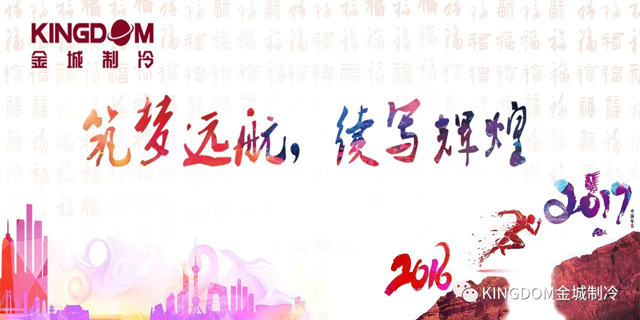 KINGDOM
金城制冷
筑梦远航，续写辉煌
2017
2016
KINGDOM金城制冷